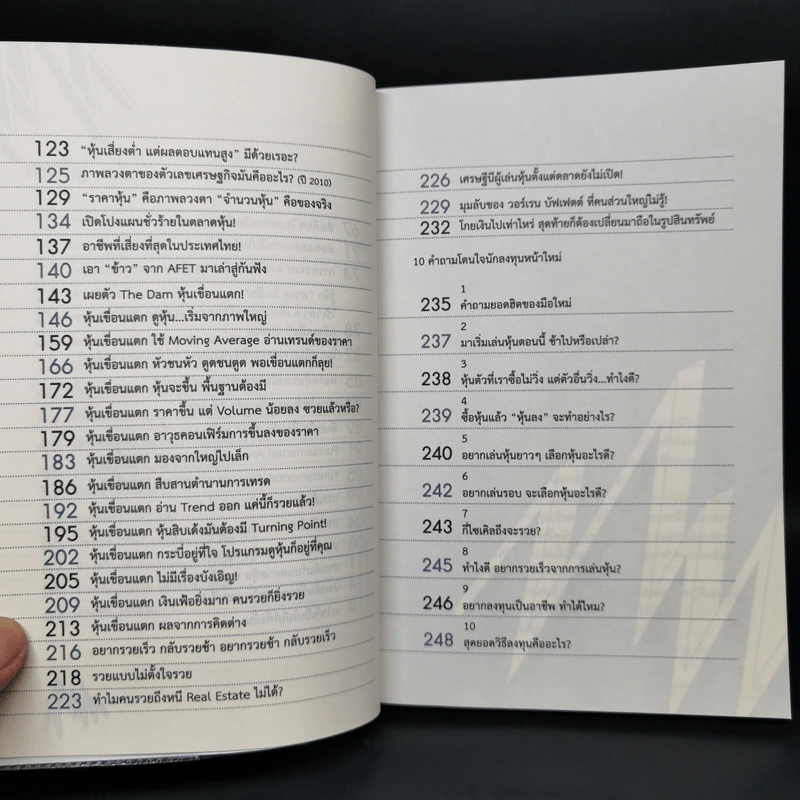 123 “หุ้นเสี่ยงต่ำ แต่ผลตอบแทนสูง” มีด้วยเรอะ?
125 ภาพลวงตาของตัวเลขเศรษฐกิจมันคืออะไร? (ปี 2010)
129 “ราคาหุ้น” คือภาพลวงตา “จำนวนหุ้น” คือของจริง
134 เปิดโปงแผนชั่วร้ายในตลาดหุ้น!
137 อาชีพที่เสี่ยงที่สุดในประเทศไทย!
140 เอา “ข้าว” จาก AFET มาเล่าสู่กันฟัง
143 เผยตัว The Dam หุ้นเขื่อนแตก!
146 หุ้นเขื่อนแตก ดูหุ้น...เริ่มจากภาพใหญ่
159 หุ้นเขื่อนแตก ใช้ Moving Average อ่านเทรนด์ของราคา
166 หุ้นเขื่อนแตก หัวชนหัว ตูดชนตูด พอเขื่อนแตกก็ลุย!
172 หุ้นเขื่อนแตก หุ้นจะขึ้น พื้นฐานต้องมี
177 หุ้นเขื่อนแตก ราคาขึ้น แต่ Volume น้อยลง ซวยแล้วหรือ?
179 หุ้นเขื่อนแตก อาวุธคอนเฟิร์มการขึ้นลงของราคา
183 หุ้นเขื่อนแตก มองจากใหญ่ไปเล็ก
186 หุ้นเขื่อนแตก สืบสานตำนานการเทรด
192 หุ้นเขื่อนแตก อ่าน Trend ออก แค่นี้ก็รวยแล้ว!
195 หุ้นเขื่อนแตก หุ้นสิบเด้งมันต้องมี Turning Point!
202 หุ้นเขื่อนแตก กระบี่อยู่ที่ใจ โปรแกรมดูหุ้นก็อยู่ที่คุณ
205 หุ้นเขื่อนแตก ไม่มีเรื่องบังเอิญ!
209 หุ้นเขื่อนแตก เงินเฟ้อยิ่งมาก คนรวยก็ยิ่งรวย
213 หุ้นเขื่อนแตก ผลจากการคิดต่าง
216 อยากรวยเร็ว กลับรวยช้า อยากรวยช้า กลับรวยเร็ว
218 รวยแบบไม่ตั้งใจรวย
223 ทำไมคนรวยถึงหนี Real Estate ไม่ได้?
226 เศรษฐีนีผู้เล่นหุ้นตั้งแต่ตลาดยังไม่เปิด!
229 มุมลับของ วอร์เรน บัฟเฟตต์ ที่คนส่วนใหญ่ไม่รู้!
232 โกยเงินไปเท่าไหร่ สุดท้ายก็ต้องเปลี่ยนมาถือในรูปสินทรัพย์
10 คำถามโดนใจนักลงทุนหน้าใหม่
1
235 คำถามยอดฮิตของมือใหม่
2
237 มาเริ่มเล่นหุ้นตอนนี้ ช้าไปหรือเปล่า?
3
238 หุ้นตัวที่เราซื้อไม่วิ่ง แต่ตัวอื่นวิ่ง...ทำไงดี?
4
239 ซื้อหุ้นแล้ว “หุ้นลง” จะทำอย่างไร?
5
240 อยากเล่นหุ้นยาวๆ เลือกหุ้นอะไรดี?
6
242 อยากเล่นรอบ จะเลือกหุ้นอะไรดี?
7
243 กี่ไซเคิลถึงจะรวย?
8
245 ทำไงดี อยากรวยเร็วจากการเล่นหุ้น?
9
246 อยากลงทุนเป็นอาชีพ ทำได้ไหม?
10
248 สุดยอดวิธีลงทุนคืออะไร?